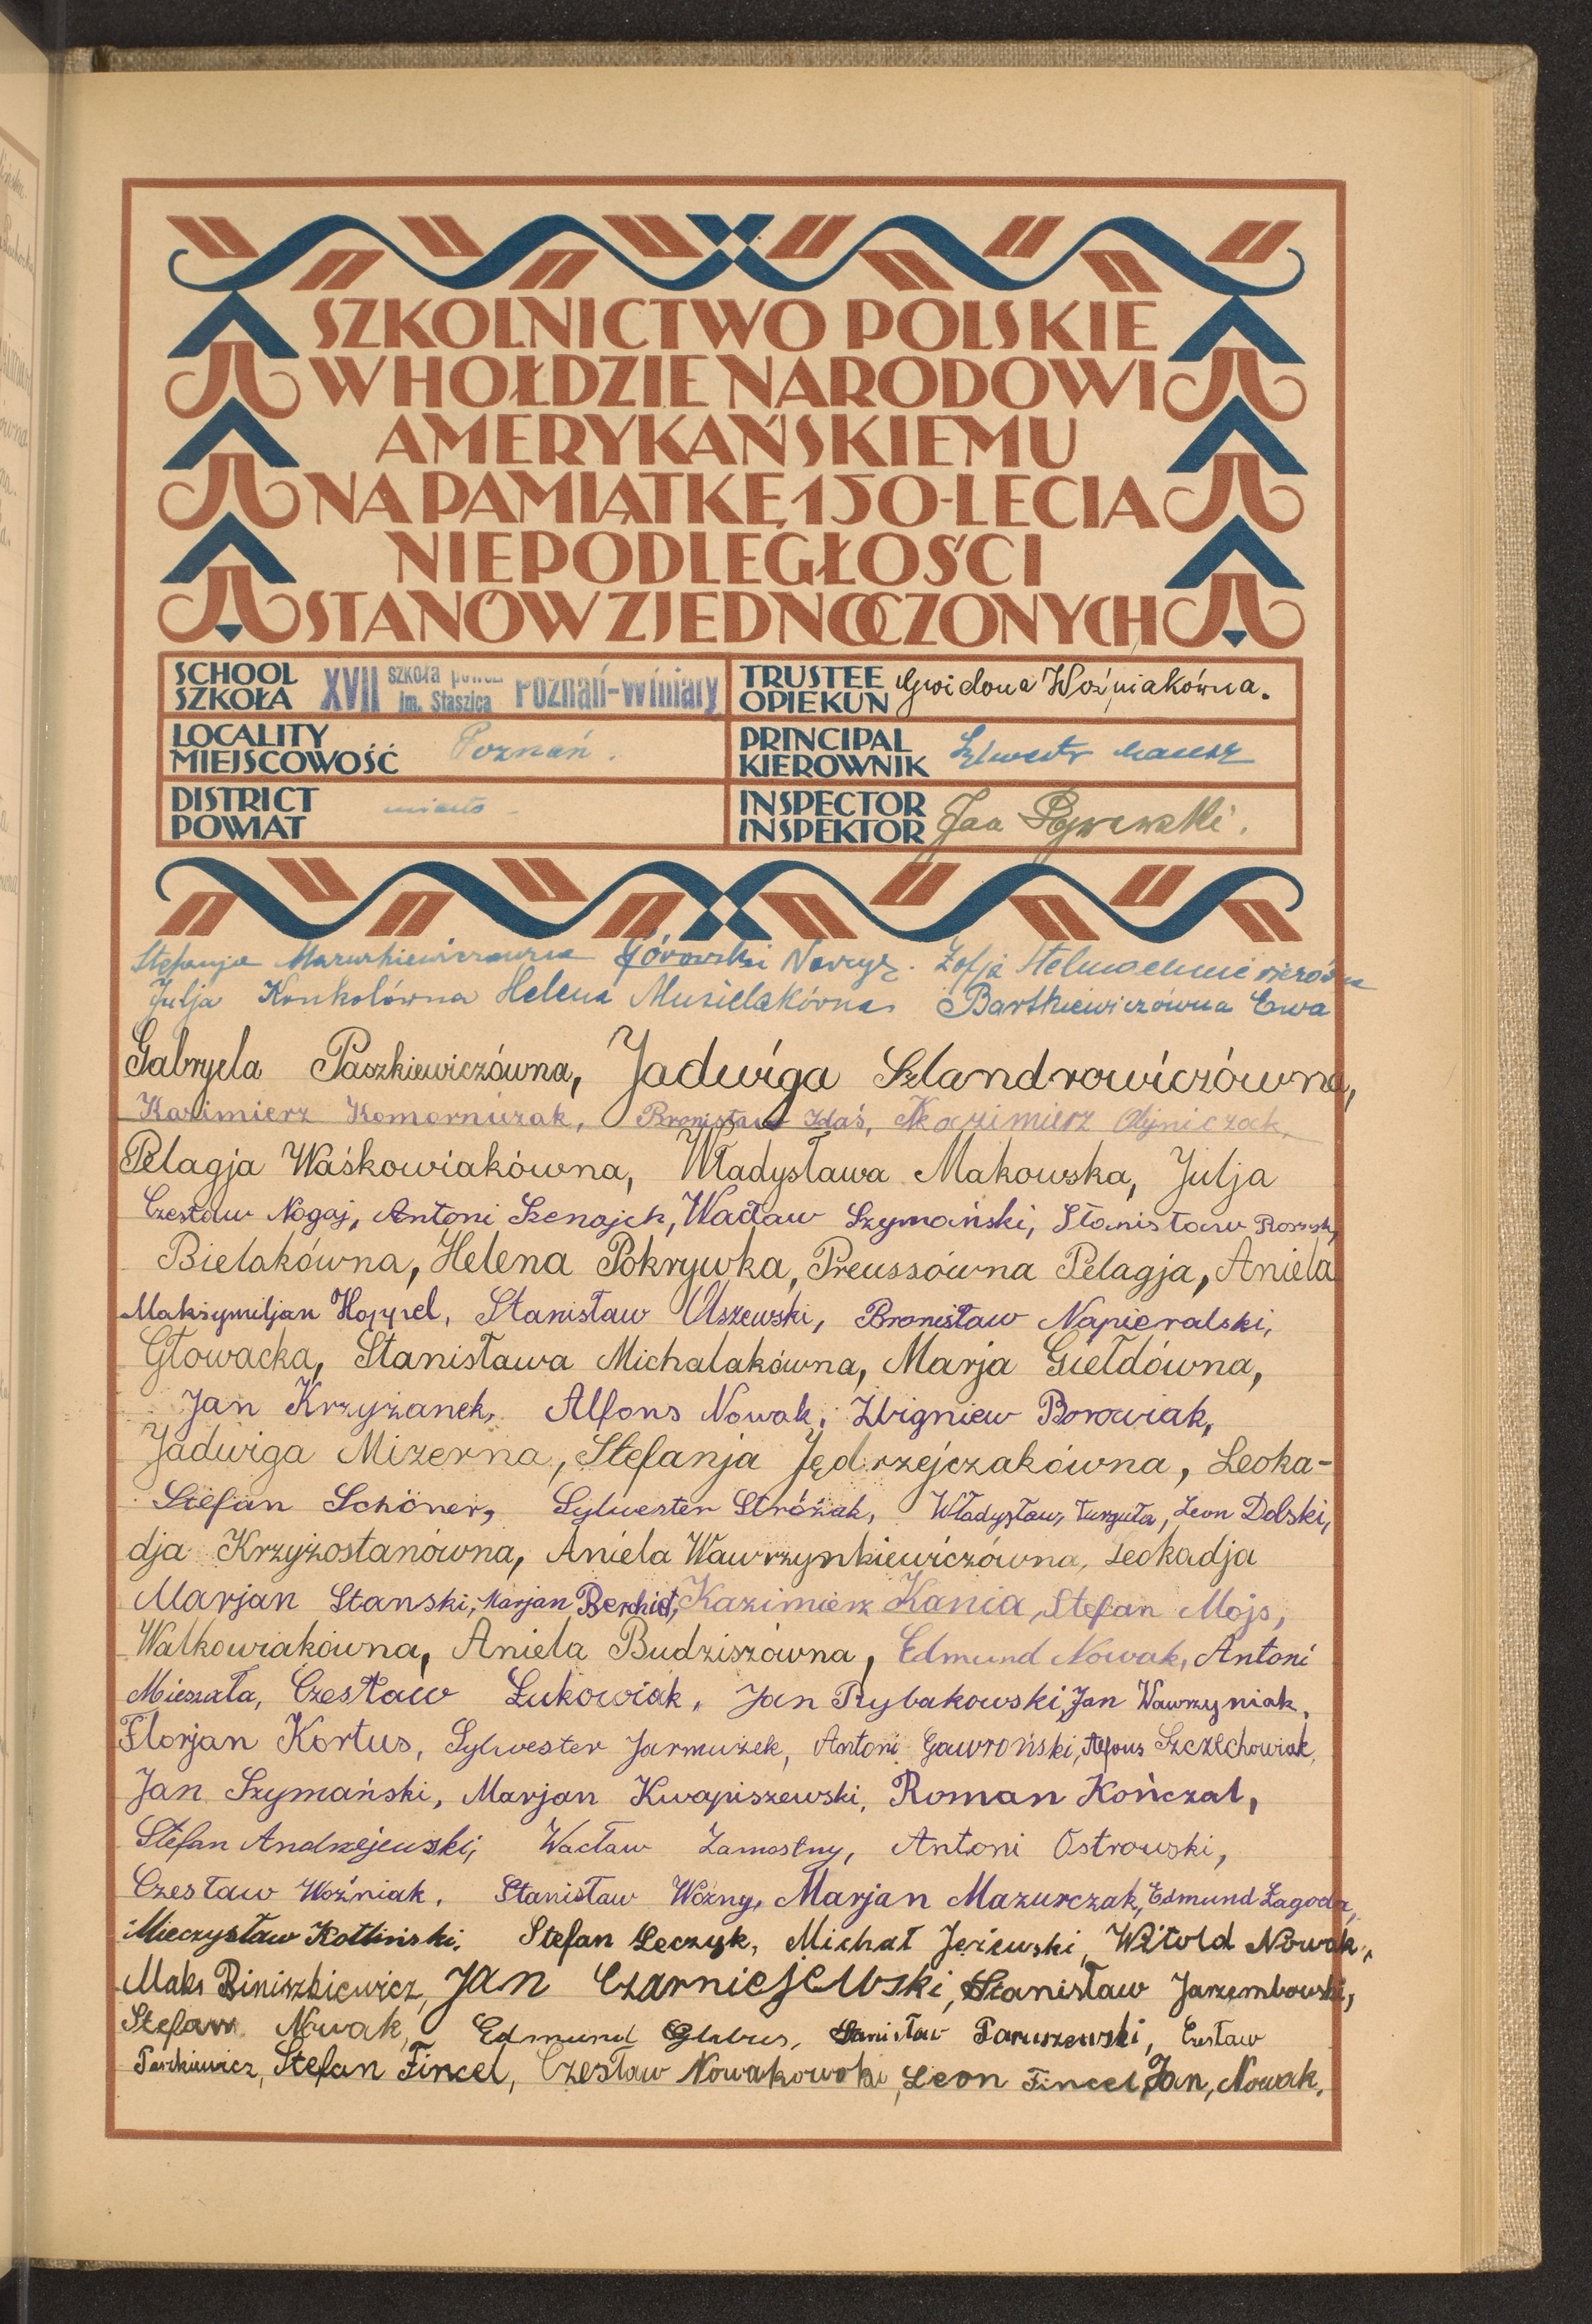 SZKOLNICTWO POLSKIE
W HOŁDZIE NARODOWI
AMERYKAŃSKIEMU
NA PAMIĄTKĘ 150-LECIA
NIEPODLEGŁOŚCI
STANÓW ZJEDNOCZONYCH
SCHOOL
SZKOŁA
XVII szkoła im. Staszica Poznań-Winiary
TRUSTEE
OPIEKUN
Gwidona Woźniakówna.
LOCALITY
MIEJSCOWOŚĆ
Poznań.
PRINCIPAL
KIEROWNIK
Sylwester
DISTRICT
POWIAT
miasto
INSPECTOR
INSPEKTOR
Jan
Stefanja Mazurkiewiczówna Górowski Narcyz. Zofja
Julja Konkolówna Helena Musielakówna Bartkiewiczówna Ewa
Gabryela Paszkiewiczówna, Jadwiga Szlandrowiczówna,
Kazimierz Komorniczak, Bronisław Idaś, Kazimierz Olejniczak,
Pelagja Waśkowiakówna, Władysława Makowska, Julja
Czesław Nogaj, Antoni Szenajch, Wacław Szymański, Stanisław
Bielakówna, Helena Pokrywka, Preussówna Pelagja, Aniela
Maksymiljan Hoppel, Stanisław Olszewski, Bronisław Napieralski,
Głowacka, Stanisława Michalakówna, Marja Giełdówna,
Jan Krzyżanek, Alfons Nowak, Zbigniew Borowiak,
Jadwiga Mizerna, Stefanja Jędrzejczakówna, Leoka-
Stefan Schöner, Sylwester Stróżak, Władysław Turguła, Leon Dolski,
dja Krzyżostanówna, Aniela Wawrzynkiewiczówna, Leokadja
Marjan Stanski, Marjan Berchiet, Kazimierz Kania, Stefan Mojs,
Walkowiakówna, Aniela Budziszówna, Edmund Nowak, Antoni
Mieszała, Czesław Łukowiak, Jan Rybakowski, Jan Wawrzyniak,
Florjan Kortus, Sylwester Jarmużek, Antoni Gawroński, Alfons Szczechowiak,
Jan Szymański, Marjan Kwapiszewski, Roman Kończal,
Stefan Andrzejewski, Wacław Zamostny, Antoni Ostrowski,
Czesław Woźniak, Stanisław Woźny, Marjan Mazurczak, Edmund Zagoda,
Mieczysław Kotliński, Stefan Leczyk, Michał Jeżewski, Witold Nowak,
Maks Biniszkiewicz, Jan Czarniejewski, Stanisław Jarzembowski,
Stefan Nowak, Edmund Glabus, Stanisław Taruszewski, Czesław
Stefan Fincel, Czesław Nowakowski, Leon Fincel, Jan, Nowak.